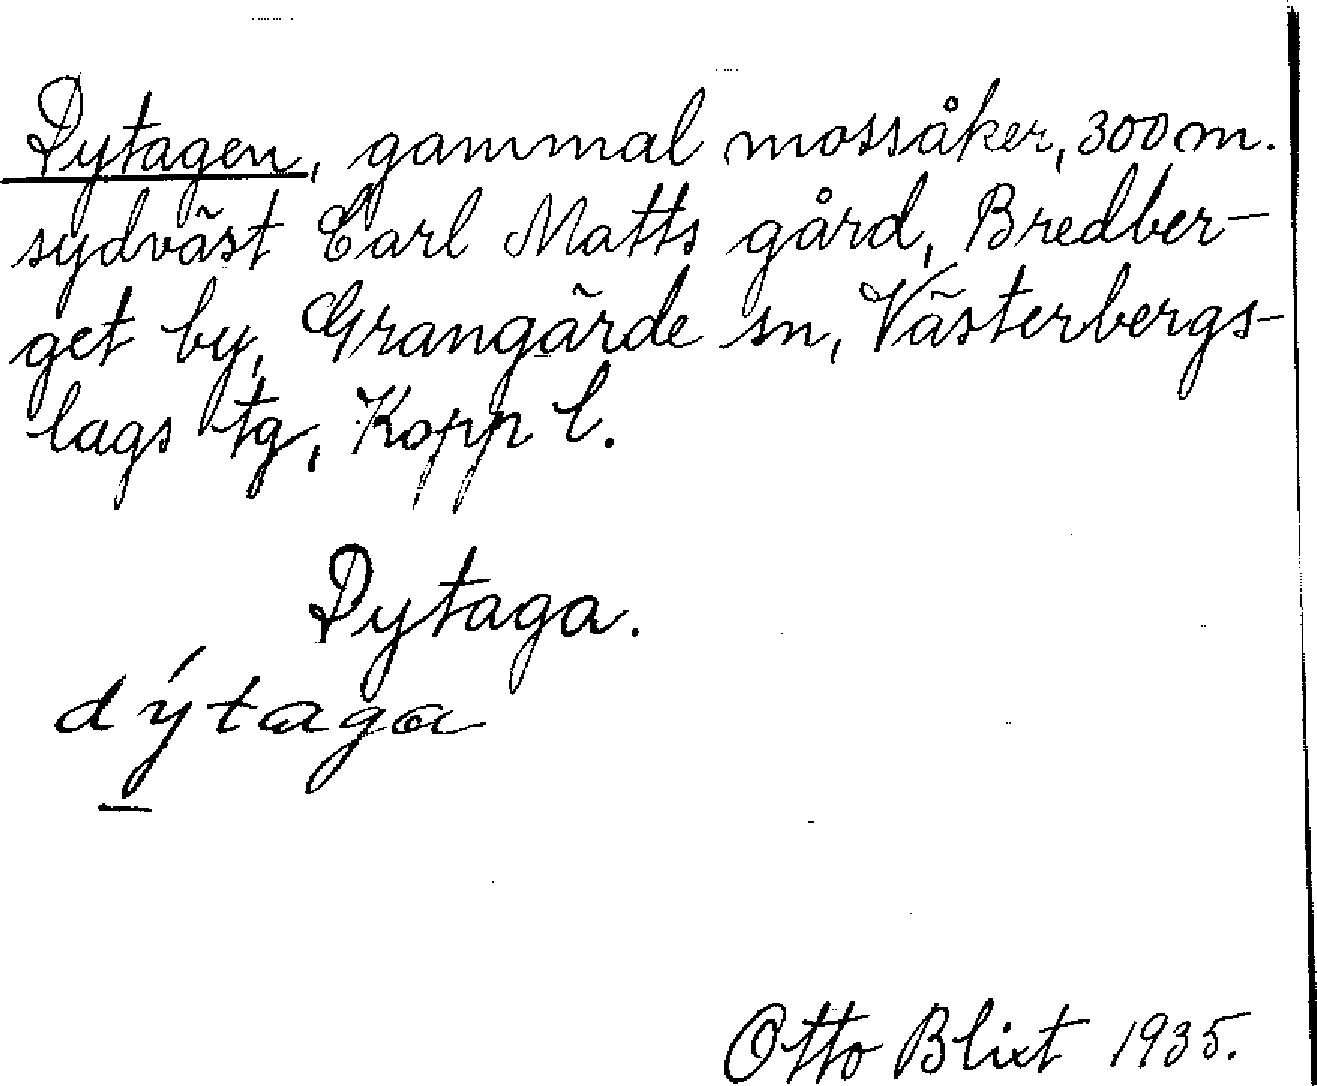 Dytagen, gammal mossåker, 300 m.
sydväst Carl Matts gård, Bredber-
get by, Grangärde sn, Västerbergs-
lags tg, Kopp l.
Dytaga.
dýtaga
Otto Blixt 1935.